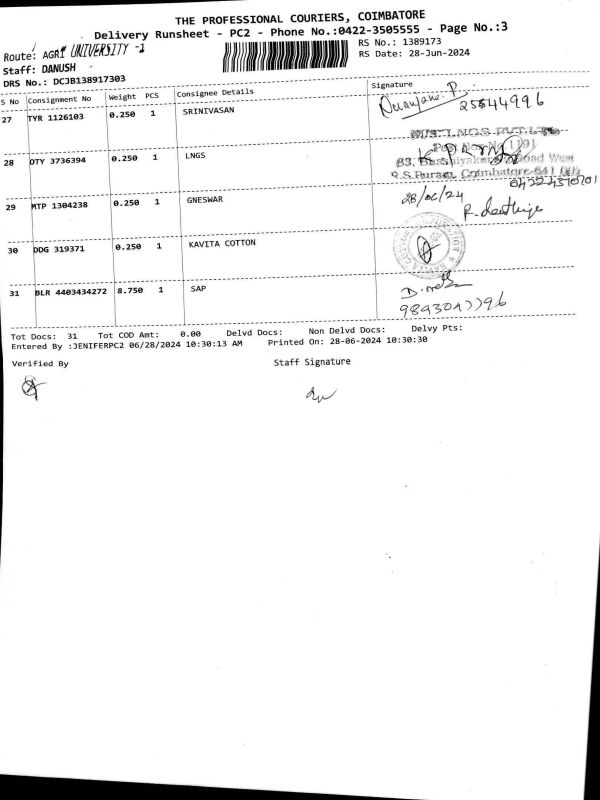 THE PROFESSIONAL COURIERS, COIMBATORE
Delivery Runsheet - PC2 - Phone No.:0422-3505555 - Page No.:3
Route: AGRI UNIVERSITY -1
RS No.: 1389173
Staff: DANUSH
RS Date: 28-Jun-2024
DRS No.: DCJB138917303
S No Consignment No Weight PCS Consignee Details Signature
27 TYR 1126103 0.250 1 SRINIVASAN 25544996
28 OTY 3736394 0.250 1 LNGS
Post Box No.1191
83, Road West
R.S.Puram, Coimbatore-641 002
29 MTP 1304238 0.250 1 GNESWAR 28/06/24
30 DDG 319371 0.250 1 KAVITA COTTON
31 BLR 4403434272 8.750 1 SAP
Tot Docs: 31 Tot COD Amt: 0.00 Delvd Docs: Non Delvd Docs: Delvy Pts:
Entered By :JENIFERPC2 06/28/2024 10:30:13 AM Printed On: 28-06-2024 10:30:30
Verified By Staff Signature